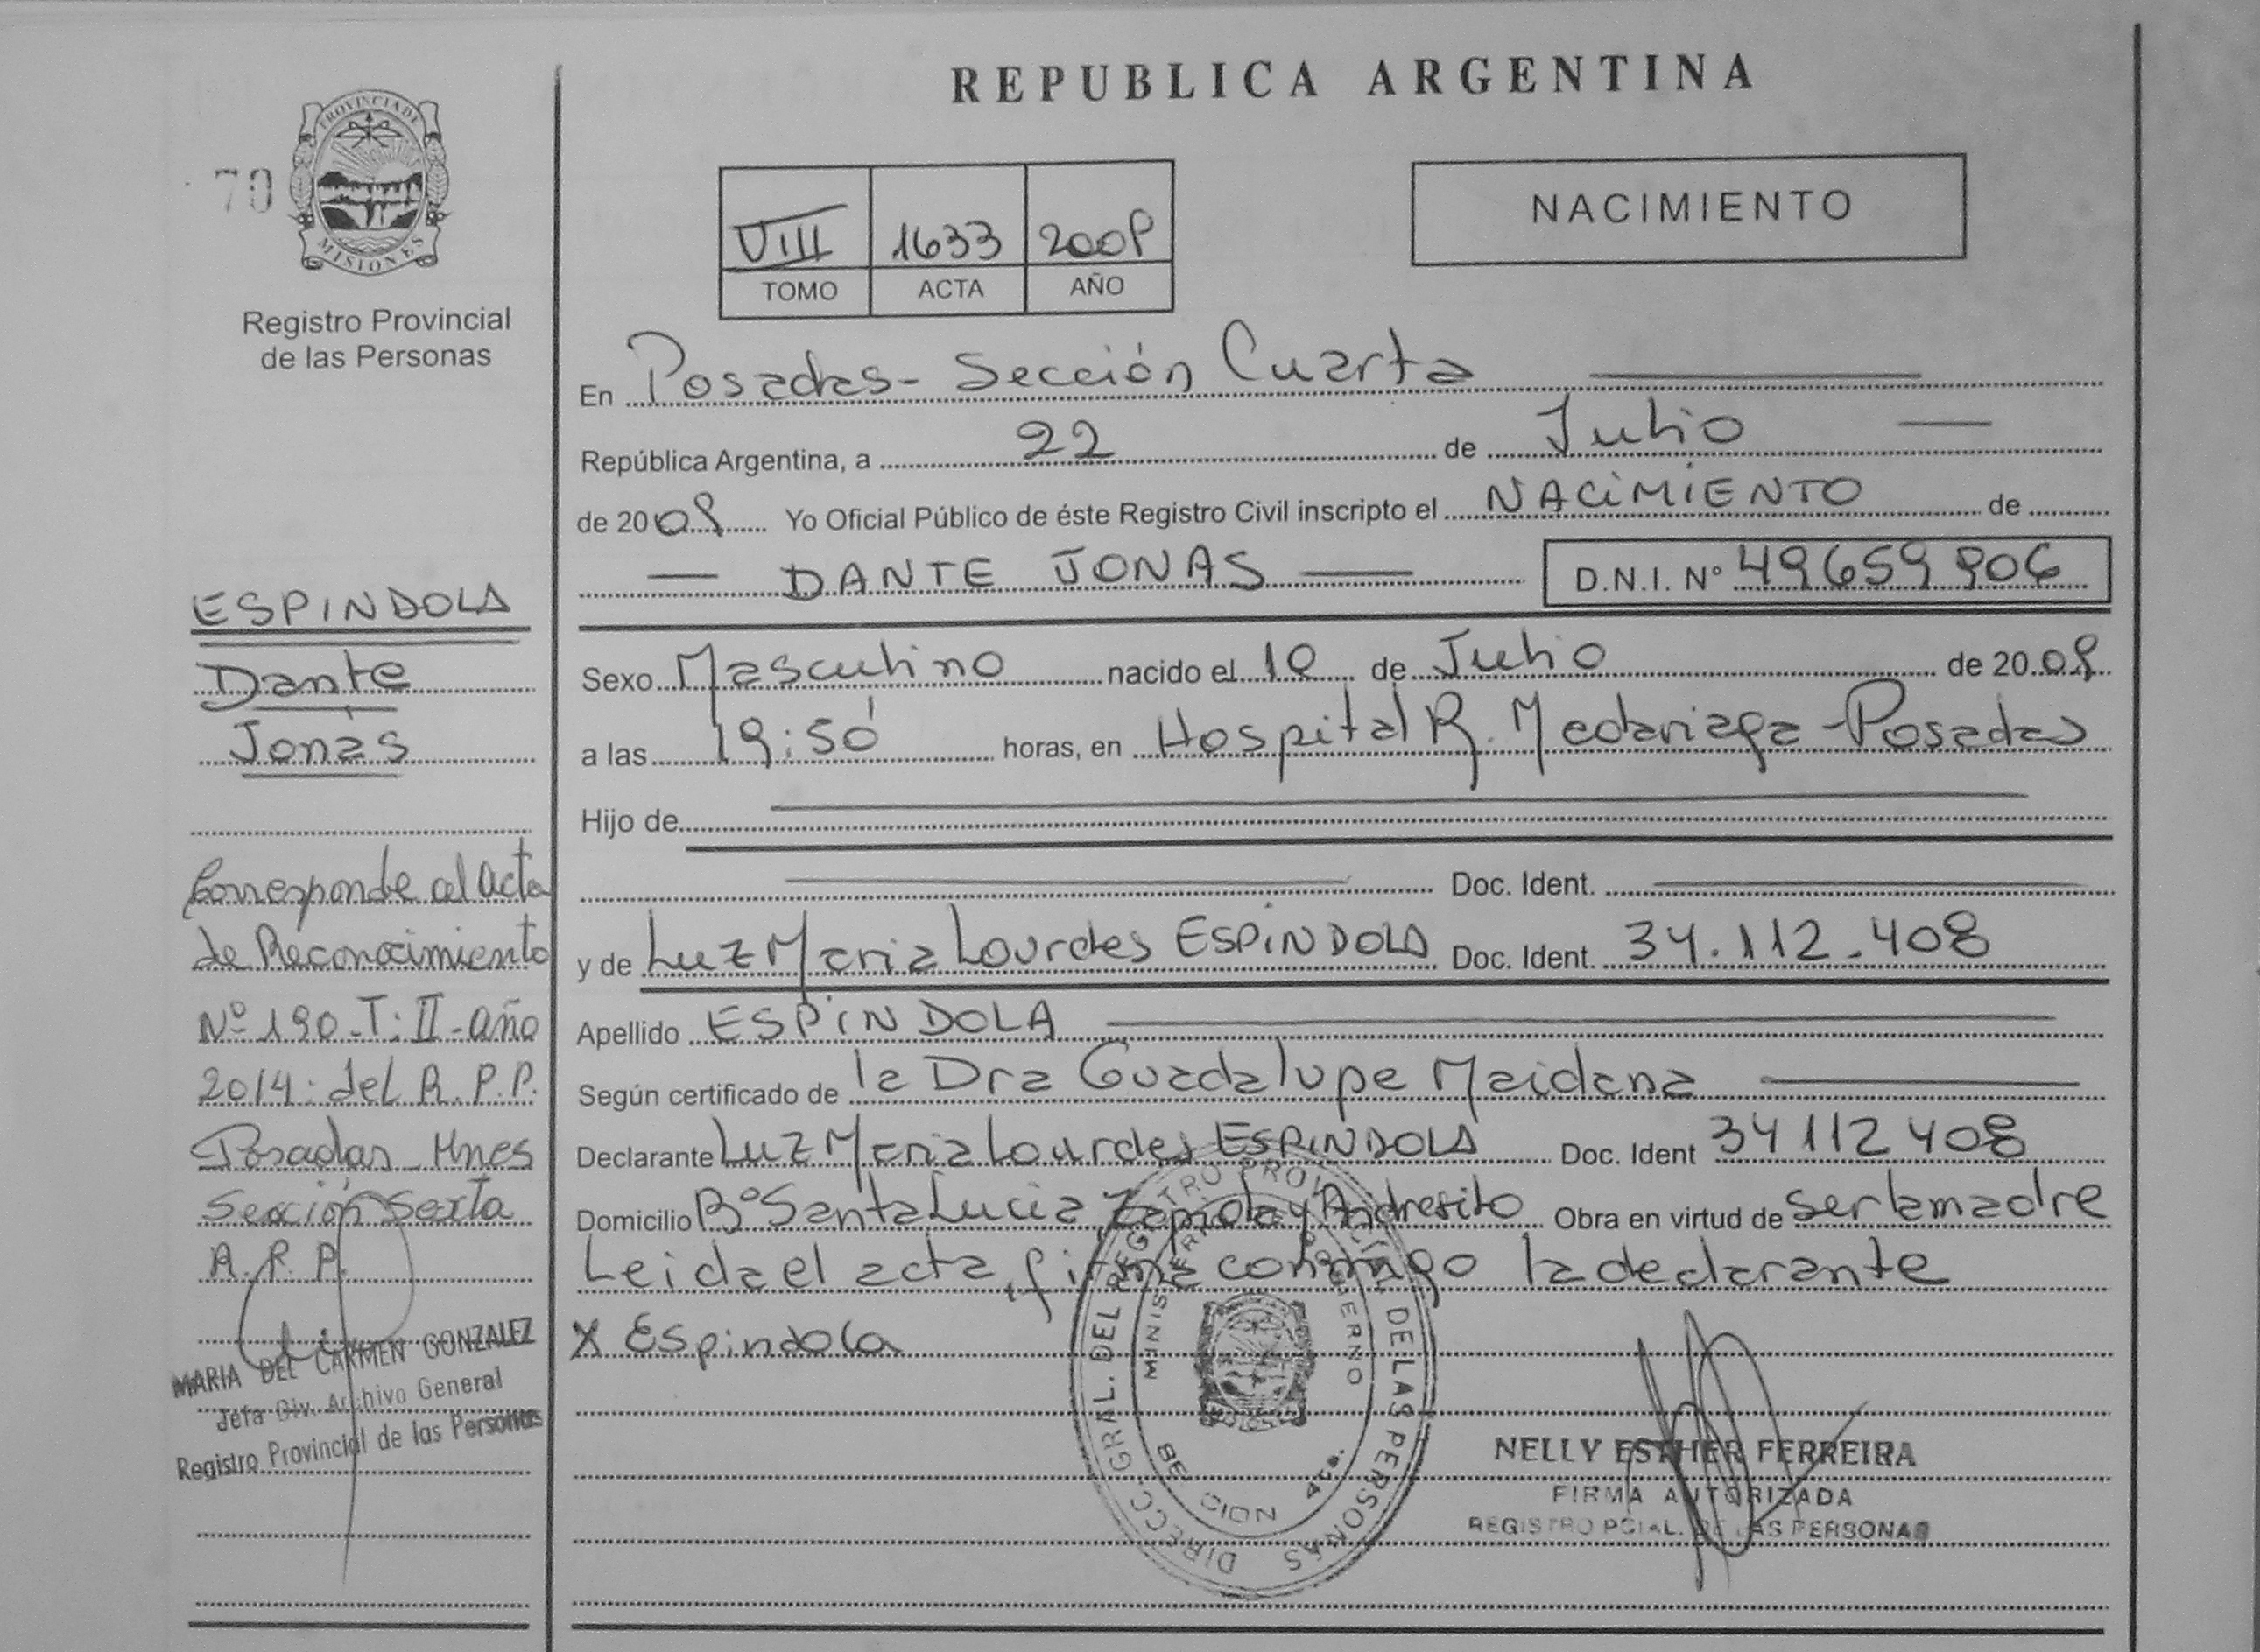 REPUBLICA ARGENTINA
PROVINCIA DE
MISIONES
70
Registro Provincial
de las Personas
VIII 1633 2009
TOMO ACTA AÑO
NACIMIENTO
En Posadas - Sección Cuarta
República Argentina, a 22 de Julio
de 2009 Yo Oficial Público de éste Registro Civil inscripto el NACIMIENTO de
DANTE JONAS D.N.I. Nº 49659906
Sexo Masculino nacido el 10 de Julio de 2009
a las 19:50 horas, en Hospital R. Madariaga - Posadas
Hijo de
Doc. Ident.
y de Luz Maria Lourdes ESPINDOLA Doc. Ident. 34.112.408
Apellido ESPINDOLA
Según certificado de la Dra Guadalupe Maidana
Declarante Luz Maria Lourdes ESPINDOLA Doc. Ident 34112408
Domicilio Bº Santa Lucia Zapiola y Andresito Obra en virtud de ser la madre
Leida el acta, firma conmigo la declarante
X Espindola
NELLY ESTHER FERREIRA
FIRMA AUTORIZADA
REGISTRO PCIAL. DE LAS PERSONAS
DIRECC. GRAL. DEL REGISTRO PROVINCIAL DE LAS PERSONAS
MINISTERIO DE GOBIERNO
SECCION 4ta.
ESPINDOLA
Dante
Jonas
Corresponde al acta
de Reconocimiento
Nº 190-T: II-año
2014: del R.P.P.
Posadas Mnes
Sección Sexta
R.P.P.
MARIA DEL CARMEN GONZALEZ
Jefa Div. Archivo General
Registro Provincial de las Personas